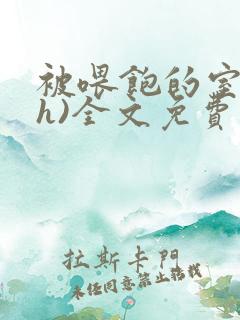 被喂飽的室
h)全文免費
拉斯卡門
未经同意禁止转载